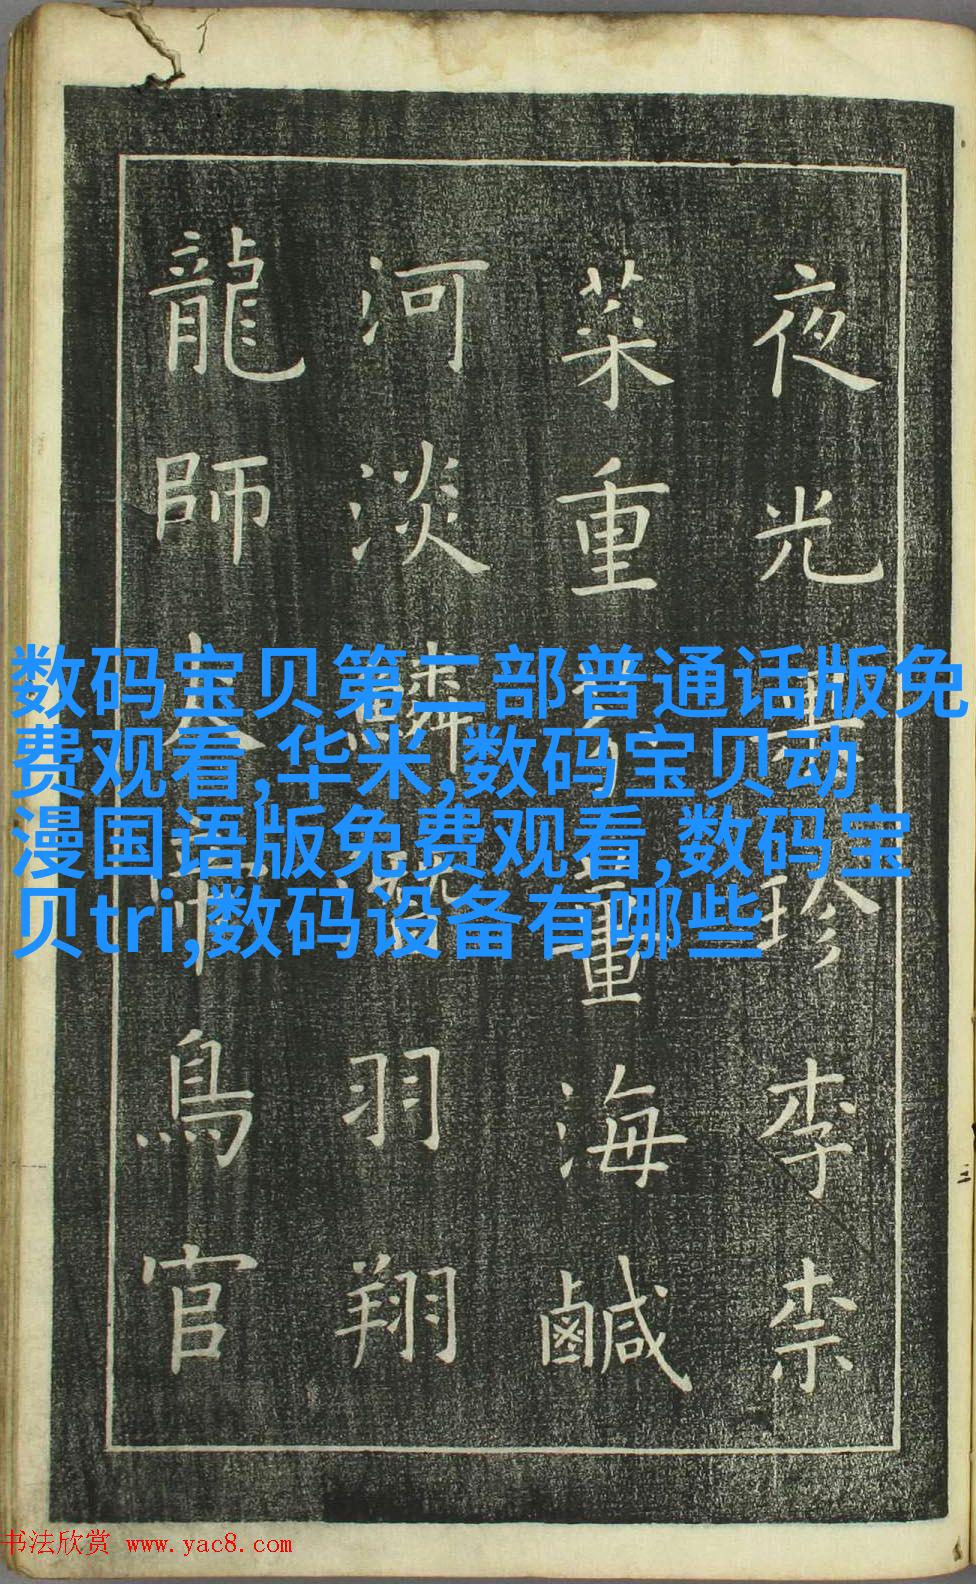 夜光珍李柰
菜重海鹹
河淡鱗潛羽翔
龍師火帝鳥官
数码宝贝第二部普通话版免
费观看,华米,数码宝贝动
漫国语版免费观看,数码宝
贝tri,数码设备有哪些
书法欣赏 www.yac8.com